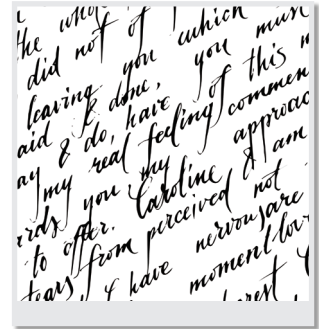 the who
did not of which must
leaving you you
aid & done, of this m
ay do, have feeling commen
my real approac
rds you my Caroline & am
to offer. perceived not
tears from nervous are
I have moment lov
erest